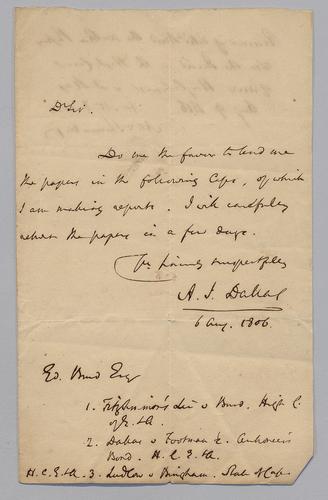 Dr Sir.
Do me the favor to lend me
the papers in the following Cases, of which
I am making reports. I will carefully
return the papers in a few days.
Yrs sincerely & respectfully
A. J. Dallas
6 Aug. 1806.
Ed. Burd Esq
1. Fitzsimmons's v Burd. High C.
of E. & A.
2. Dallas v Footman &c. Auctioneers
Bond. H. C. E. & A.
H. C. E. & A. 3. Ludlow v Bingham. State of Case